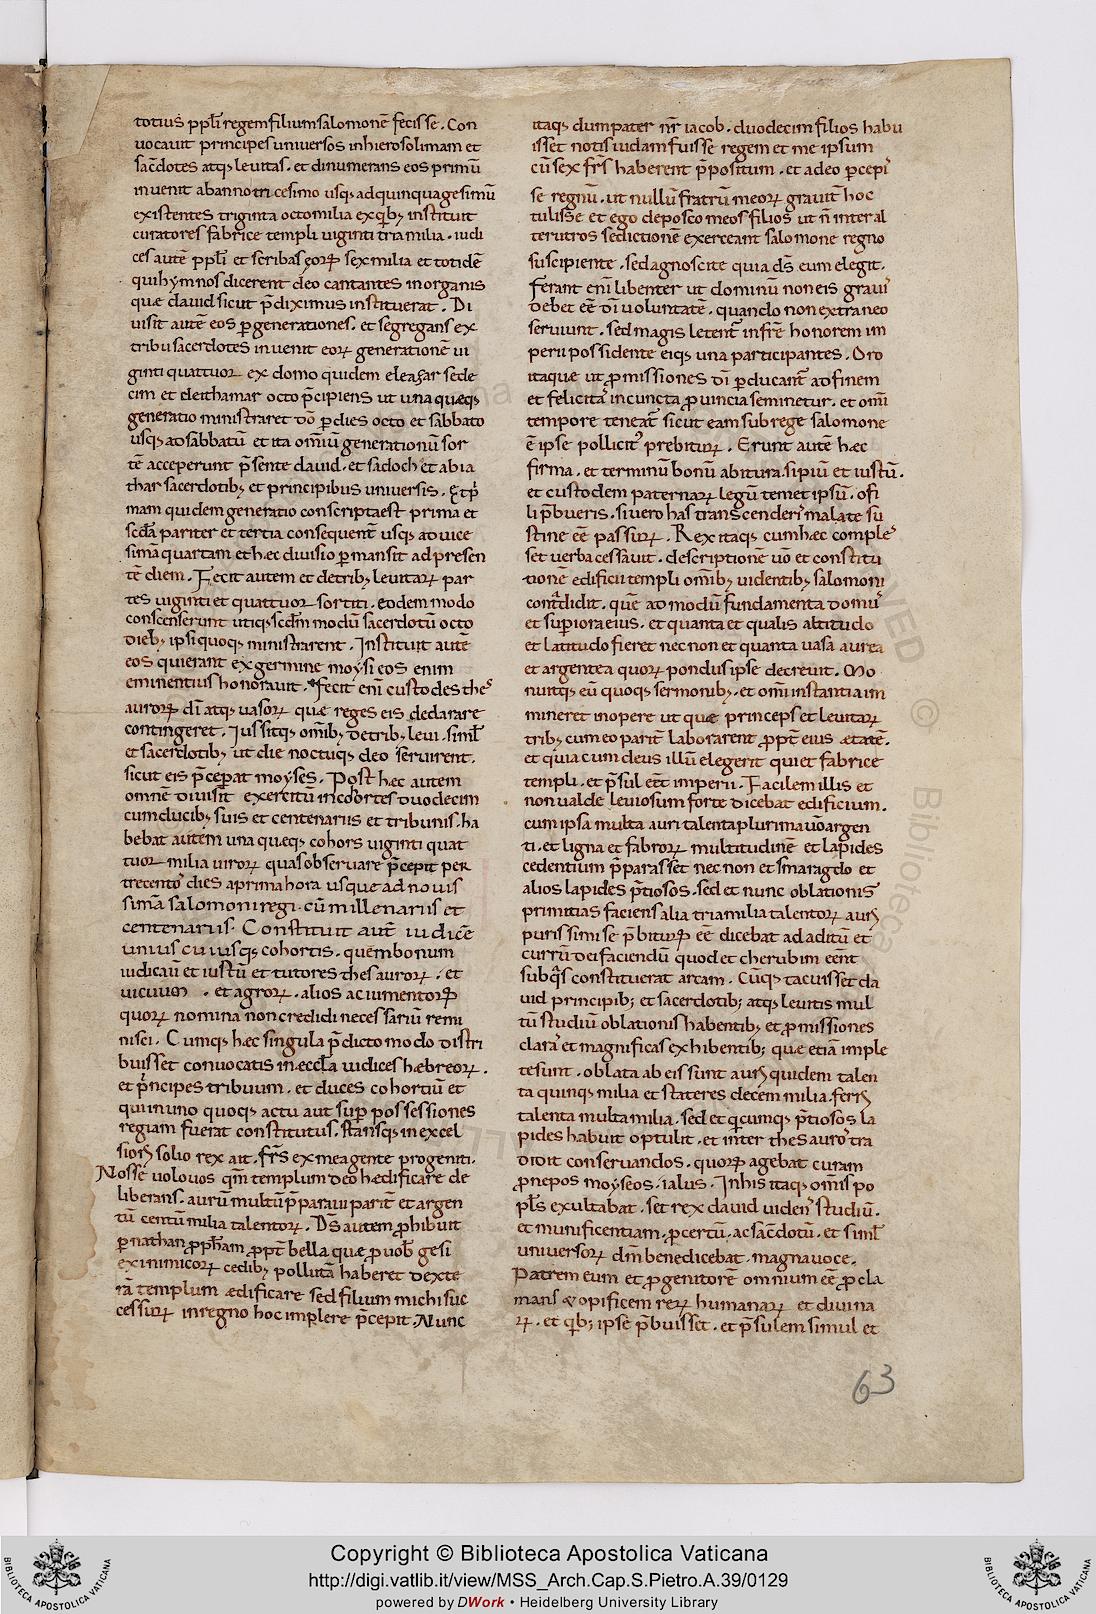 totius ppl̄i regem filium salomonē fecisse. Con
uocauit principes uniuersos in hierosolimam et
sac̄dotes atqȝ leuitas. et dinumerans eos primū
inuenit ab anno tricesimo usqȝ ad quinquagesimū
existentes triginta octo milia ex qibȝ instituit
curatores fabrice templi uiginti tria milia. iudi
ces autē ppl̄i et scribas eoꝝ sex milia et totidē
qui hymnos dicerent deo cantantes in organis
quæ dauid sicut p̄diximus instituerat. Di
uisit autē eos ꝑ generationes. et segregans ex
tribu sacerdotes inuenit eoꝝ generationē ui
ginti quattuor ex domo quidem eleazar sede
cim et de ithamar octo p̄cipiens ut una quæqȝ
generatio ministraret dō ꝑ dies octo et sabbato
usqȝ ad sabbatū et ita omīū generationū sor
tē acceperunt p̄sente dauid. et sadoch et abia
thar sacerdotibȝ et principibus uniuersis. Et p̄
mam quidem generatio conscripta est prima et
scd̄a pariter et tertia consequent̄ usqȝ ad uice
simā quartam et hec diuisio ꝑmansit ad presen
tē diem. Fecit autem et de tribȝ leuitaꝝ par
tes uiginti et quattuor sortiti. eodem modo
conscenserunt utiqȝ scd̄m modū sacerdotū octo
diebȝ ipsi quoqȝ ministrarent. Instituit autē
eos qui erant ex germine moysi eos enim
eminentius honorauit. fecit eni custodes the
auroꝝ dī atqȝ uasoꝝ quæ reges eis dedarare
contingeret. Iussitqȝ omībȝ de tribȝ leui. simil̄
et sacerdotibȝ ut die noctuqȝ deo seruirent.
sicut eis p̄ceperat moyses. Post hæc autem
omnē diuisit exercitū in cohortes duodecim
cum ducibȝ suis et centenariis et tribunis. ha
bebat autem una quæqȝ cohors uiginti quat
tuor milia uiroꝝ quas obseruare p̄cepit per
trecentos dies a prima hora usque ad nouis
simā salomoni regi. cū millenariis et
centenariis. Constituit aut̄ iudicē
unius cuiusqȝ cohortis. quem bonum
iudicauit et iustū et tutores thesauroꝝ. et
uicuum. et agroꝝ. alios ac iumentoꝝ
quoꝝ nomina non credidi necessariū remi
nisci. Cumqȝ hæc singula p̄dicto modo distri
buisset conuocatis in eccl̄a iudices hæbreoꝝ.
et p̄ncipes tribuum. et duces cohortiū et
qui in uno quoqȝ actu aut suꝑ possessiones
regiam fuerat constitutus. stansqȝ in excel
siori solio rex ait. fr̄s ex mea gente progeniti.
Nosse uolo uos qm̄ templum deo hædificare de
liberans. aurū multū p̄paraui parit̄ et argen
tū centū milia talentoꝝ. Ds̄ autem ꝓhibuit
ꝑ nathan ꝓph̄am ꝓpt̄ bella quæ ꝓ uobis gesi
ex inimicoꝝ cedibȝ pollutā haberet dexte
rā templum ædificare sed filium michi suc
cessuꝝ in regno hoc implere p̄cepit. Nunc
itaqȝ dum pater nr̄ iacob. duodecim filios habu
isset notis iudam fuisse regem et me ipsum
cū sex fr̄s haberent p̄positum. et adeo ꝑcepi
se regnū. ut nullū fratrū meoꝝ grauit̄ hoc
tulisse et ego deposco meos filios ut n̄ inter al
terutros sedictionē exerceant salomone regno
suscipiente. sed agnoscite quia ds̄ eum elegit.
Ferant enī libenter ut dominū non eis graui
debet eē dī uoluntatē. quando non extraneo
seruiunt. sed magis letent̄ in fr̄e honorem im
perii possidente eiqȝ una participantes. Oro
itaque ut ꝓmissiones dī ꝑducant̄ ad finem
et felicitas in cuncta ꝓuincia seminetur. et omī
tempore teneat̄ sicut eam sub rege salomone
ē ipse pollicitus prebituꝝ. Erunt autē hæc
firma. et terminū bonū abitura. si piū et iustū.
et custodem paternaꝝ legū temet ipsū. o fi
li p̄bueris. si uero has transcenderis mala te su
stine eē passuꝝ. Rex itaqȝ cum hæc comple
set uerba cessauit. descriptionē uō et constitu
tionē edificii templi omībȝ uidentibȝ salomoni
contradidit. quē ad modū fundamenta domus
et superiora eius. et quanta et qualis altitudo
et latitudo fieret nec non et quanta uasa aurea
et argentea quoꝝ pondus ipse decreuit. Mo
nuitqȝ eū quoqȝ sermonibȝ. et omī instantia im
mineret in opere ut quæ princeps et leuitaꝝ
tribȝ cum eo parit̄ laborarent ꝓpt̄ eius ætatē.
et quia cum deus illū elegerit qui et fabrice
templi. et p̄sul eēt imperii. Facilem illis et
non ualde leuiosum forte dicebat edificium.
cum ipsa multa auri talenta plurima uō argen
ti. et ligna et fabroꝝ multitudinē et lapides
cedentium p̄parasset nec non et smaragdo et
alios lapides p̄tiosos. sed et nunc oblationis
primitias faciens alia tria milia talentoꝝ auri
purissimi se p̄bituꝝ eē dicebat ad aditū et
currū dei faciendū quod et cherubim eent
sub qis constituerat arcam. Cūqȝ tacuisset da
uid principibȝ et sacerdotibȝ atqȝ leuitis mul
tū studiū oblationis habentibȝ et ꝓmissiones
claras et magnificas exhibentibȝ quæ etiā imple
tesunt. oblata ab eis sunt auri quidem talen
ta quinqȝ milia et stateres decem milia. ferri
talenta multa milia. sed et qicumqȝ p̄tiosos la
pides habuit optulit. et inter thesauros tra
didit conseruandos. quoꝝ agebat curam
ꝓnepos moyseos. ialus. In his itaqȝ omis po
pl̄s exultabat. set rex dauid uidens studiū.
et munificentiam. ꝓcertū. ac sac̄dotū. et simil̄
uniuersoꝝ dm̄ benedicebat. magna uoce.
Patrem eum et ꝓgenitorē omnium eē ꝓcla
mans & opificem reꝝ humanaꝝ et diuina
ꝝ. et qibȝ ipse p̄buisset. et p̄sulem simul et
63
Copyright © Biblioteca Apostolica Vaticana
http://digi.vatlib.it/view/MSS_Arch.Cap.S.Pietro.A.39/0129
powered by DWork • Heidelberg University Library